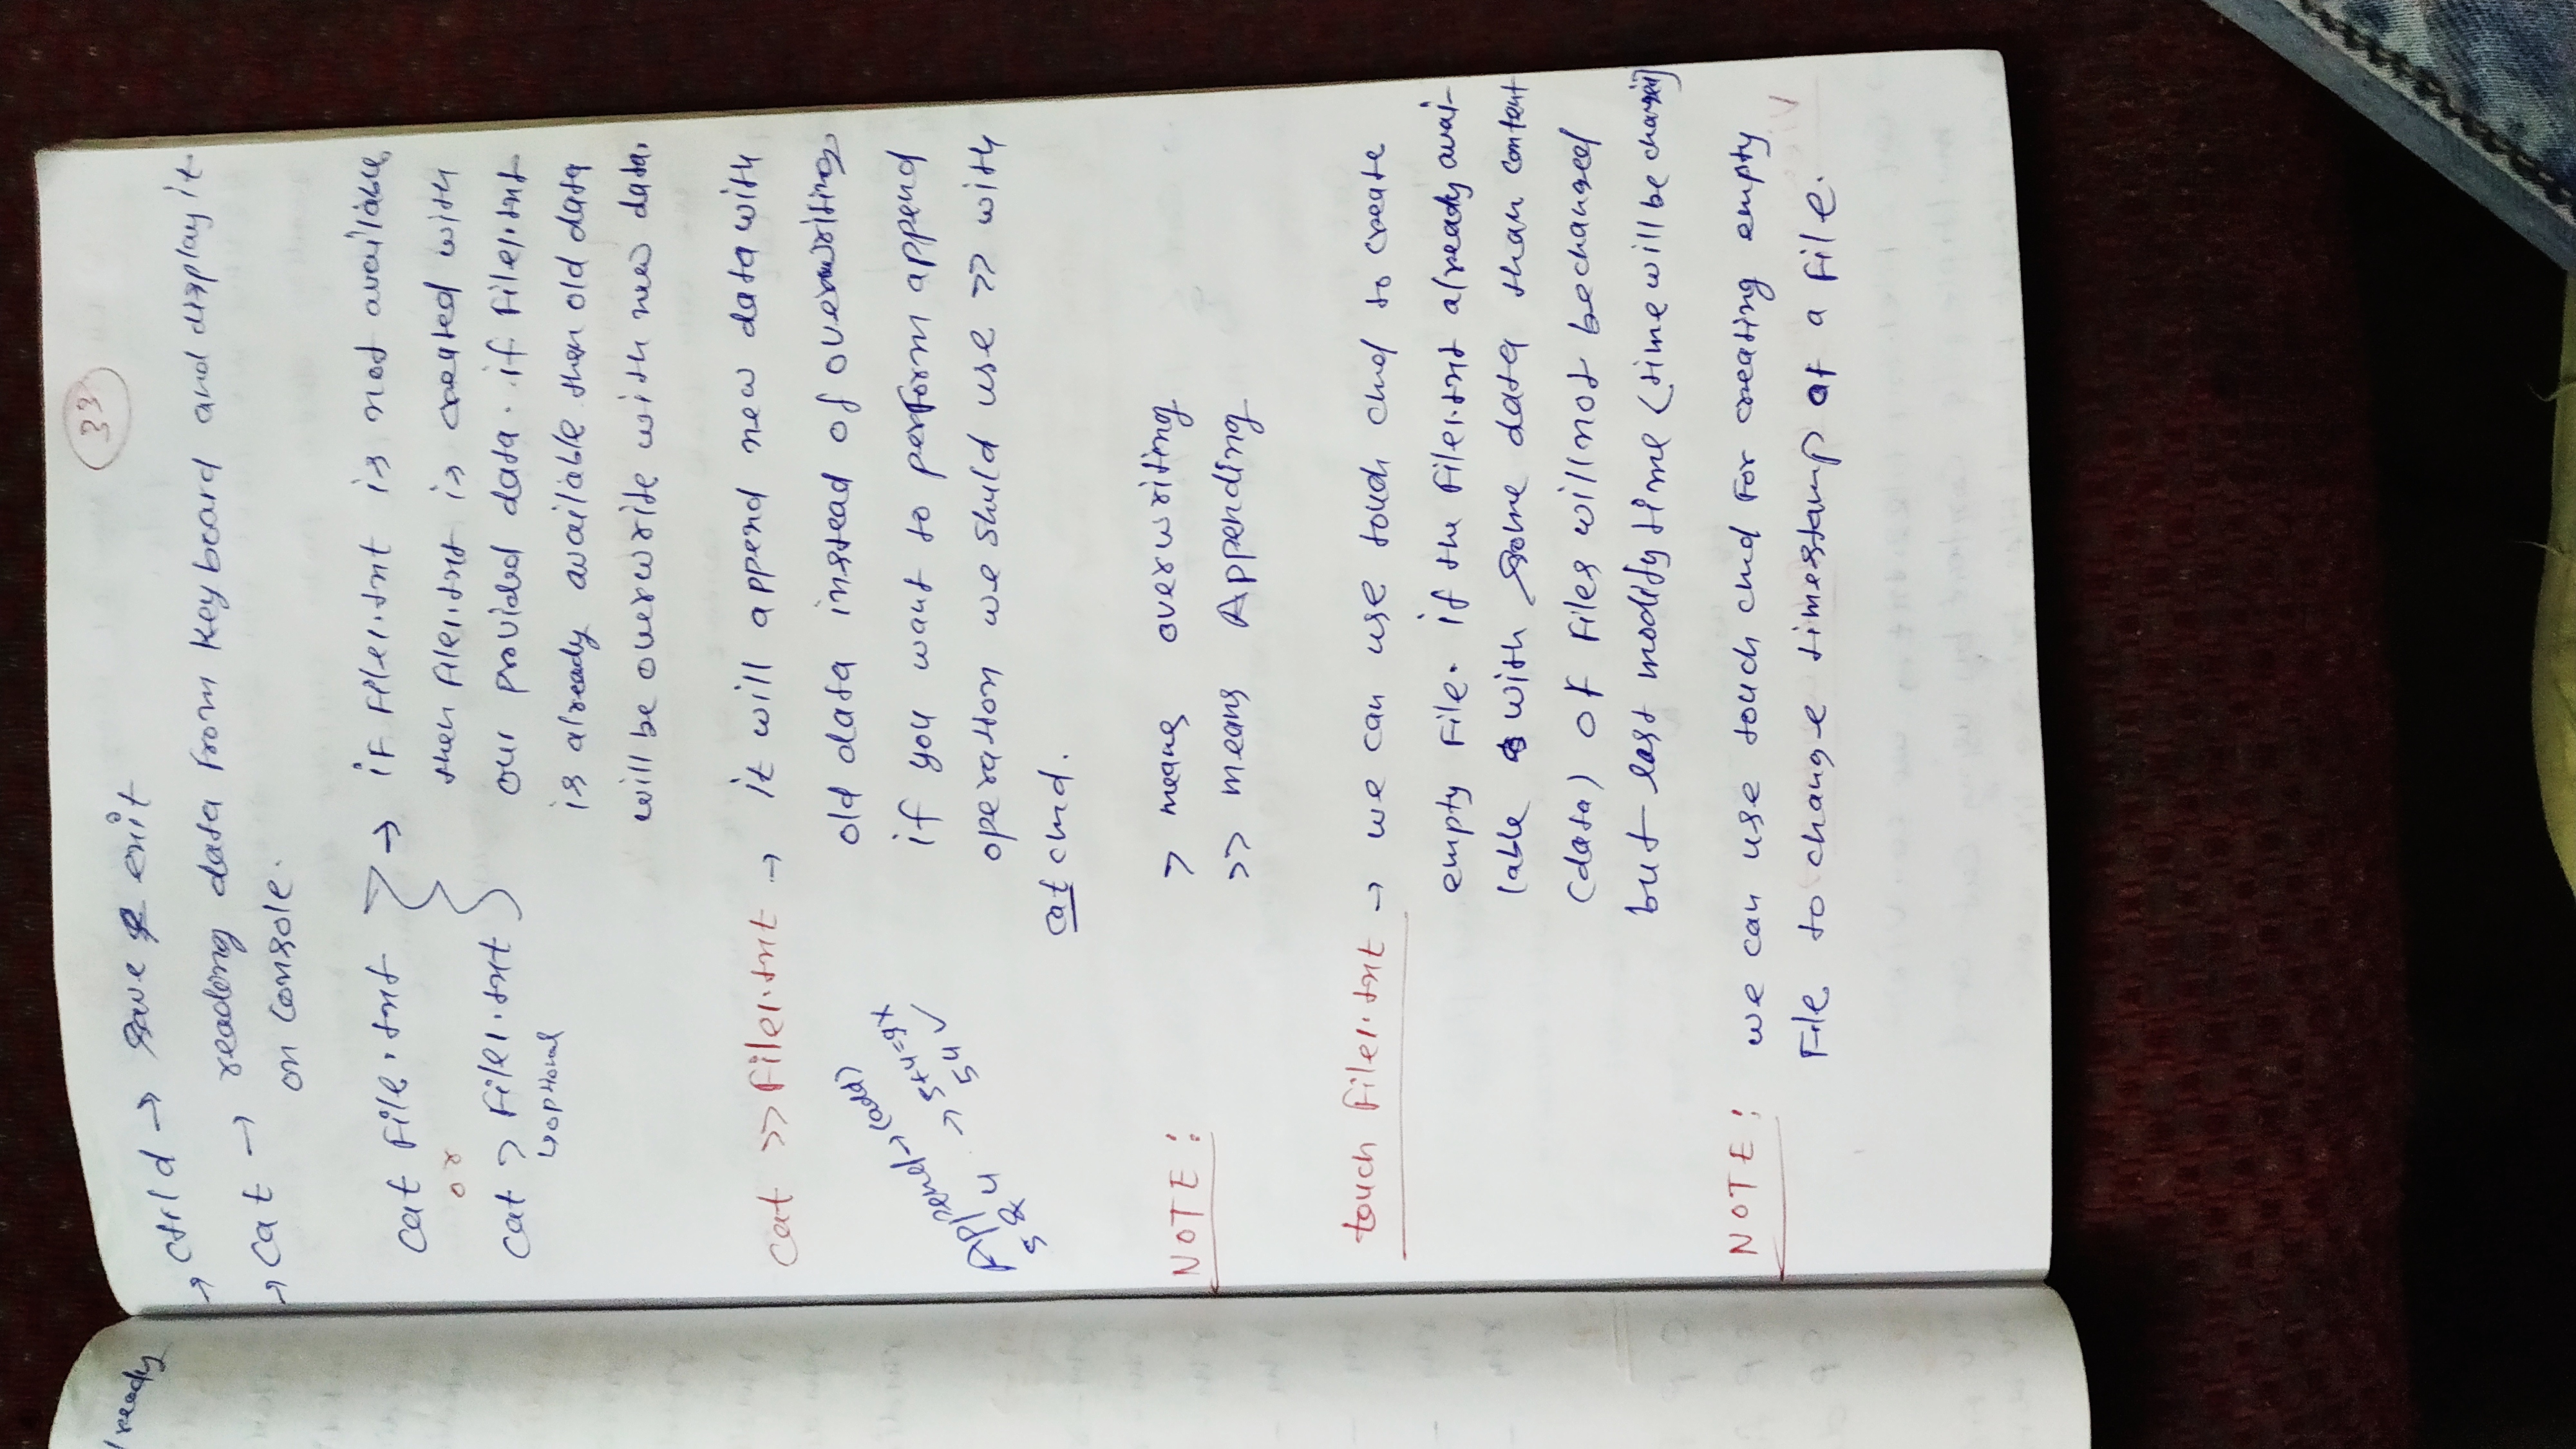 33
/ready
→ ctrl d → save & exit
→ cat → reading data from keyboard and display it
on console.
cat file.txt
or
cat > File1.txt
↳ optional
→ if File1.txt is not available
then file1.txt is created with
our provided data. if File1.txt
is already available then old data
will be overwrite with new data.
cat >> File1.txt → it will append new data with
old data instead of overwriting
if you want to perform append
operation we shuld use >> with
cat cmd.
Append → (add)
5 & 4 → 5+4=9 x
54 ✓
NOTE: > means overwriting
>> means Appending
touch File1.txt → we can use touch cmd to create
empty File. if the File1.txt already avai-
lable with some data than content
(data) of Files will not be changed
but last modify time (time will be changed)
NOTE: we can use touch cmd for creating empty
File to change timestamp of a file.